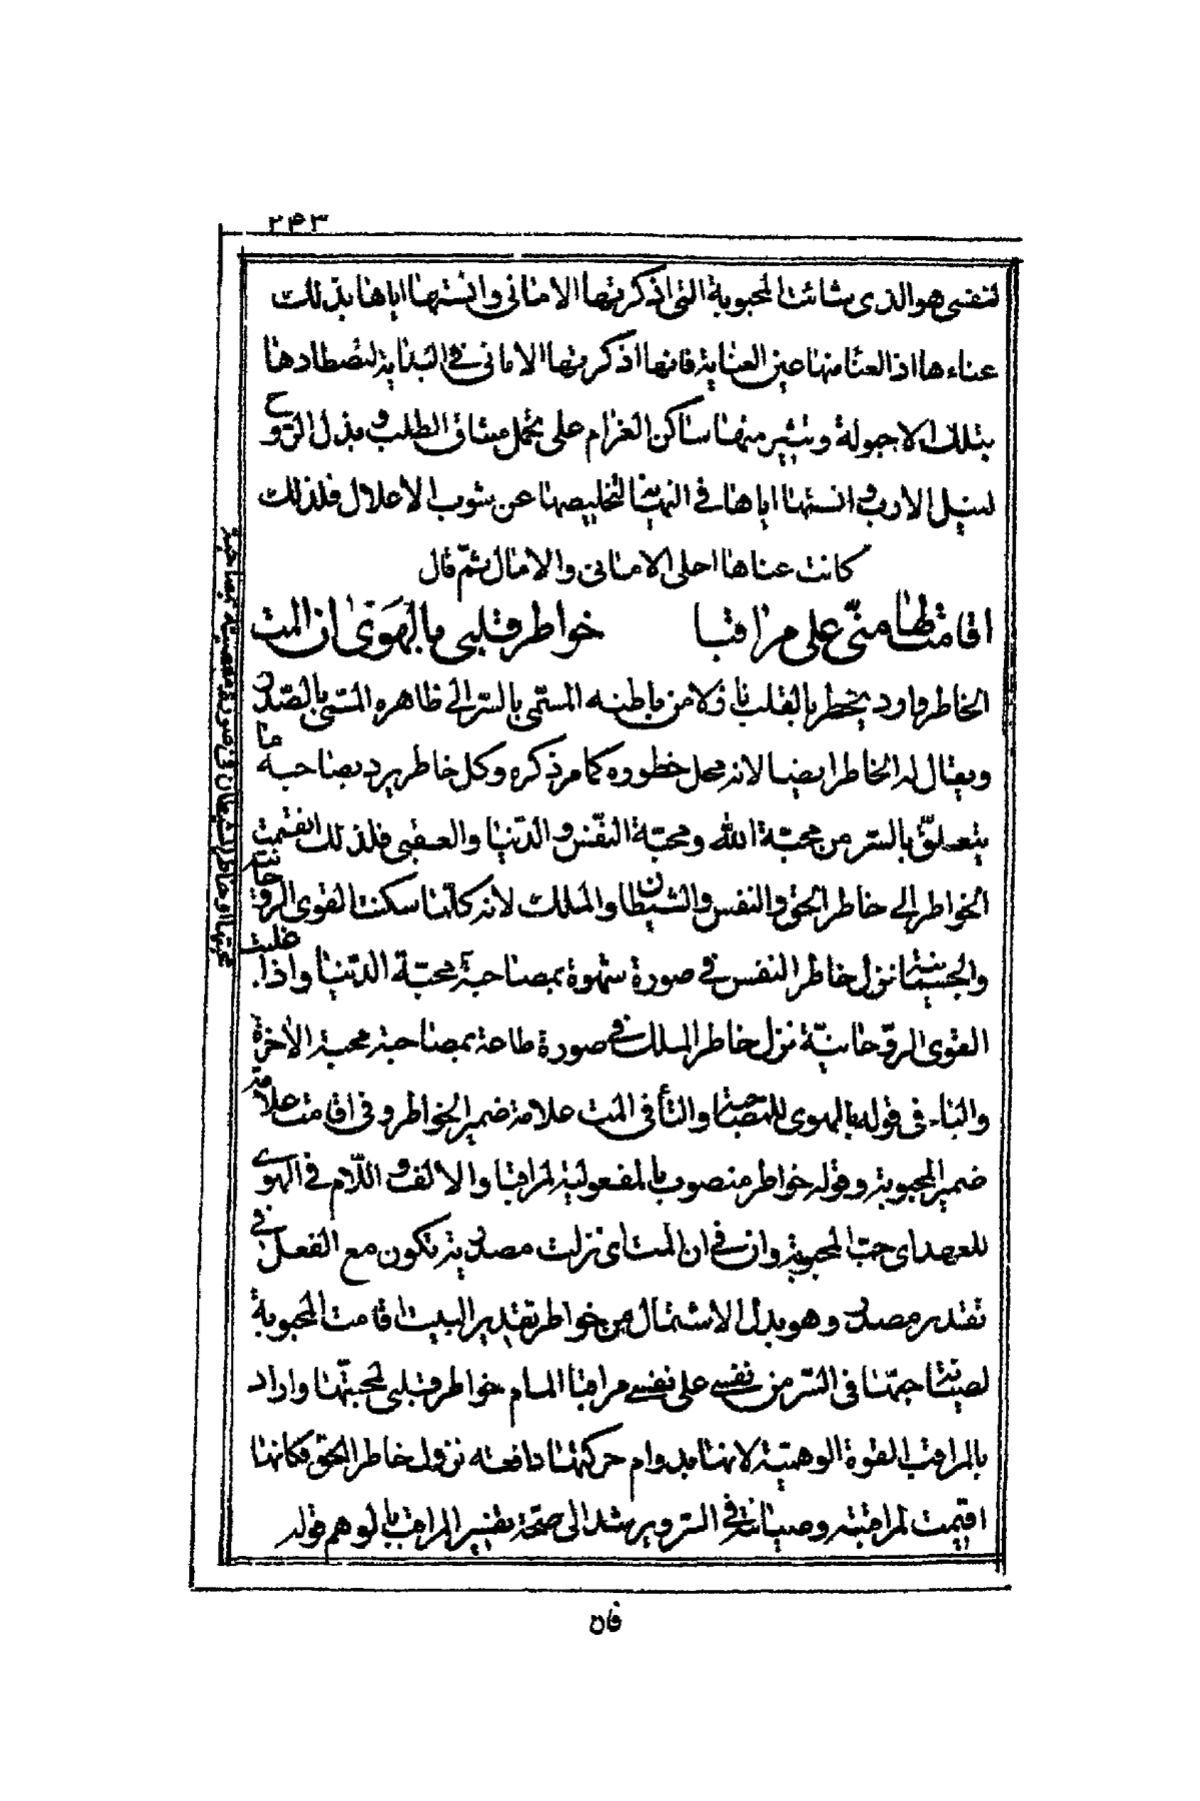 ۲۴۳
لنفسى هو الذى بشائت المحبوبة التى اذكرتها الامانى وانستها اياها بذلك
عناءها اذ العنا منها عين العناية فانها اذكرتها الامانى فى البداية لتصطادها
بتلك الاحبولة وتثير منها ساكن الغرام على تحمل مشاق الطلب وبذل الروح
لنيل الارب وانستها اياها فى النهاية لتخليصها عن شوب الاعلال فلذلك
كانت عناها احلى الامانى والامال ثمّ قال
اقامت لها منّى علىّ مراقبا خواطر قلبى بالهوى ان المت
الخاطر وارد يخطر بالقلب نازلا من باطنه المسمّى بالسّر الى ظاهره المسمّى بالصّدر
ويقال له الخاطر ايضا لانه محل خطوره كما مر ذكره وكل خاطر يرد بمصاحبة ما
يتعلّق بالسّر من محبّة الله ومحبّة النّفس والدّنيا والعقبى فلذلك انقسمت
الخواطر الى خاطر الحق والنفس والشيطان والملك لانه كلّما سكنت القوى الروحانية
والجسمانية نزل خاطر النفس فى صورة شهوة بمصاحبة محبّة الدّنيا واذا غلبت
القوى الروّحانيّة نزل خاطر الملك فى صورة طاعة بمصاحبة محبة الآخرة
والباء فى قوله بالهوى للمصاحبة والتأ فى المت علامة ضمير الخواطر وفى اقامت علامة
ضمير المحبوبة وقوله خواطر منصوب بالمفعولية لمراقبا والالف واللّام فى الهوى
للعهد اى حبّ المحبوبة وان فى ان المت اى نزلت مصدرية تكون مع الفعل فى
تقدير مصدر وهو بدل الاشتمال من خواطر تقدير البيت اقامت المحبوبة
لصيانة حبّها فى السّر من نفسى على نفسى مراقبا المام خواطر قلبى لمحبّتها واراد
بالمراقب القوة الوهميّة لانها بدوام حركتها دافعه نزول خاطر الحق فكانها
اقيمت لمراقبته وصيانته فى السّر ويرشد الى صحّة تفسير المراقب بالوهم قوله
فان